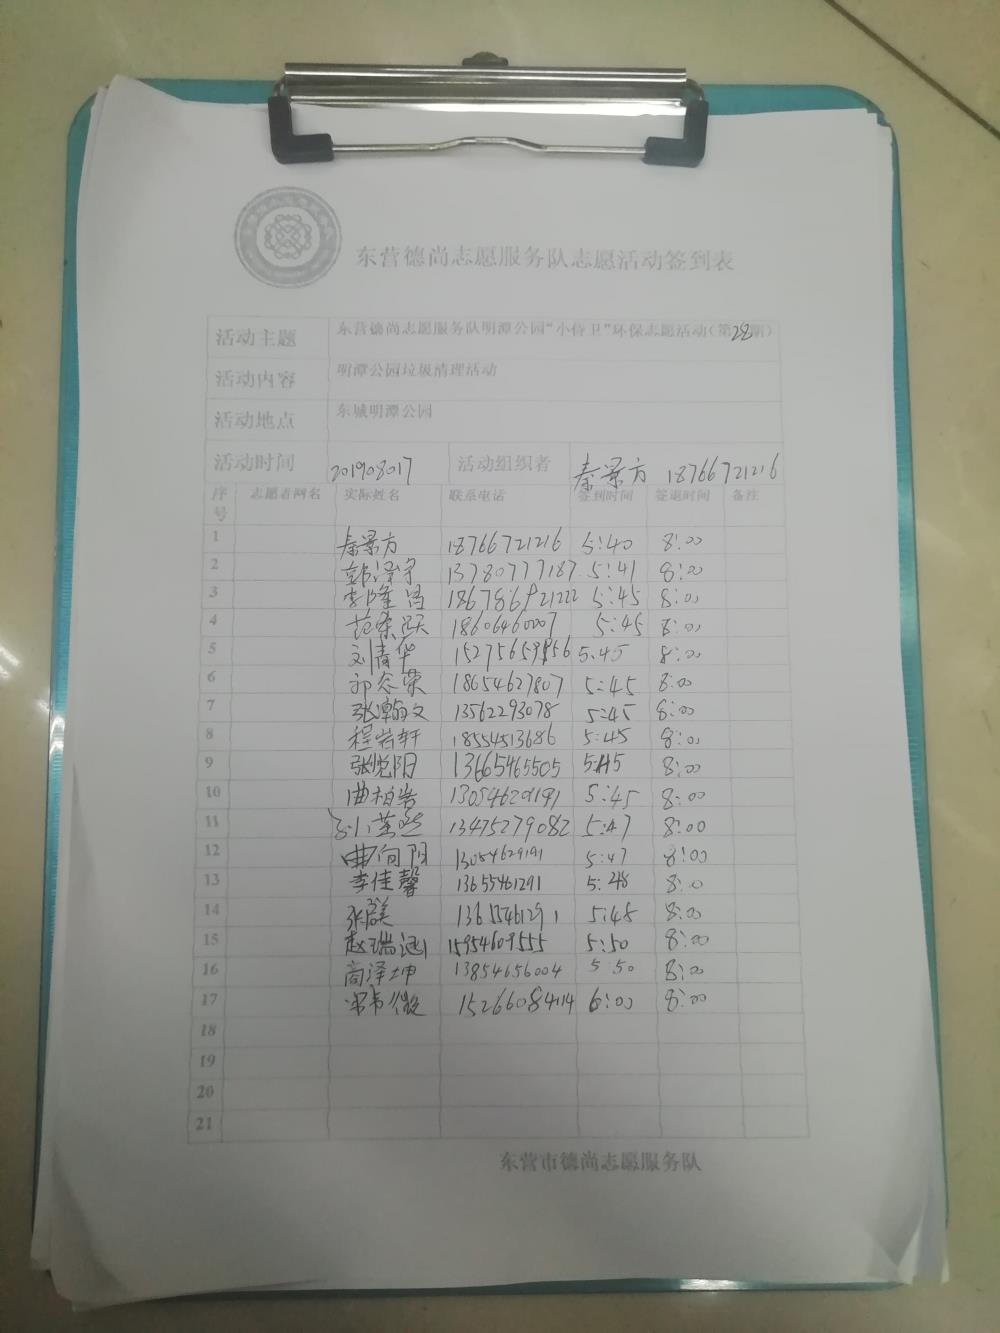 东营德尚志愿服务队志愿活动签到表
活动主题 东营德尚志愿服务队明潭公园“小侍卫”环保志愿活动(第28期)
活动内容 明潭公园垃圾清理活动
活动地点 东城明潭公园
活动时间 201908017 活动组织者 秦景方 18766721216
序号 志愿者网名 实际姓名 联系电话 签到时间 签退时间 备注
1 秦景方 18766721216 5:40 8:00
2 13780777187 5:41 8:00
3 李隆昌 5:45 8:00
4 范荣跃 18606460007 5:45 8:00
5 刘青华 5:45 8:00
6 18654627807 5:45 8:00
7 张瀚文 13562293078 5:45 8:00
8 程岩轩 18554513686 5:45 8:00
9 张悦阳 13665465505 5:45 8:00
10 曲柏岩 13054629191 5:45 8:00
11 13475279082 5:47 8:00
12 曲向阳 13054629191 5:47 8:00
13 李佳馨 13655461291 5:48 8:0
14 张群美 13655461291 5:48 8:00
15 赵瑞涵 15954609555 5:50 8:00
16 高泽坤 13854656004 5:50 8:00
17 15266084114 6:00 8:00
18
19
20
21
东营市德尚志愿服务队